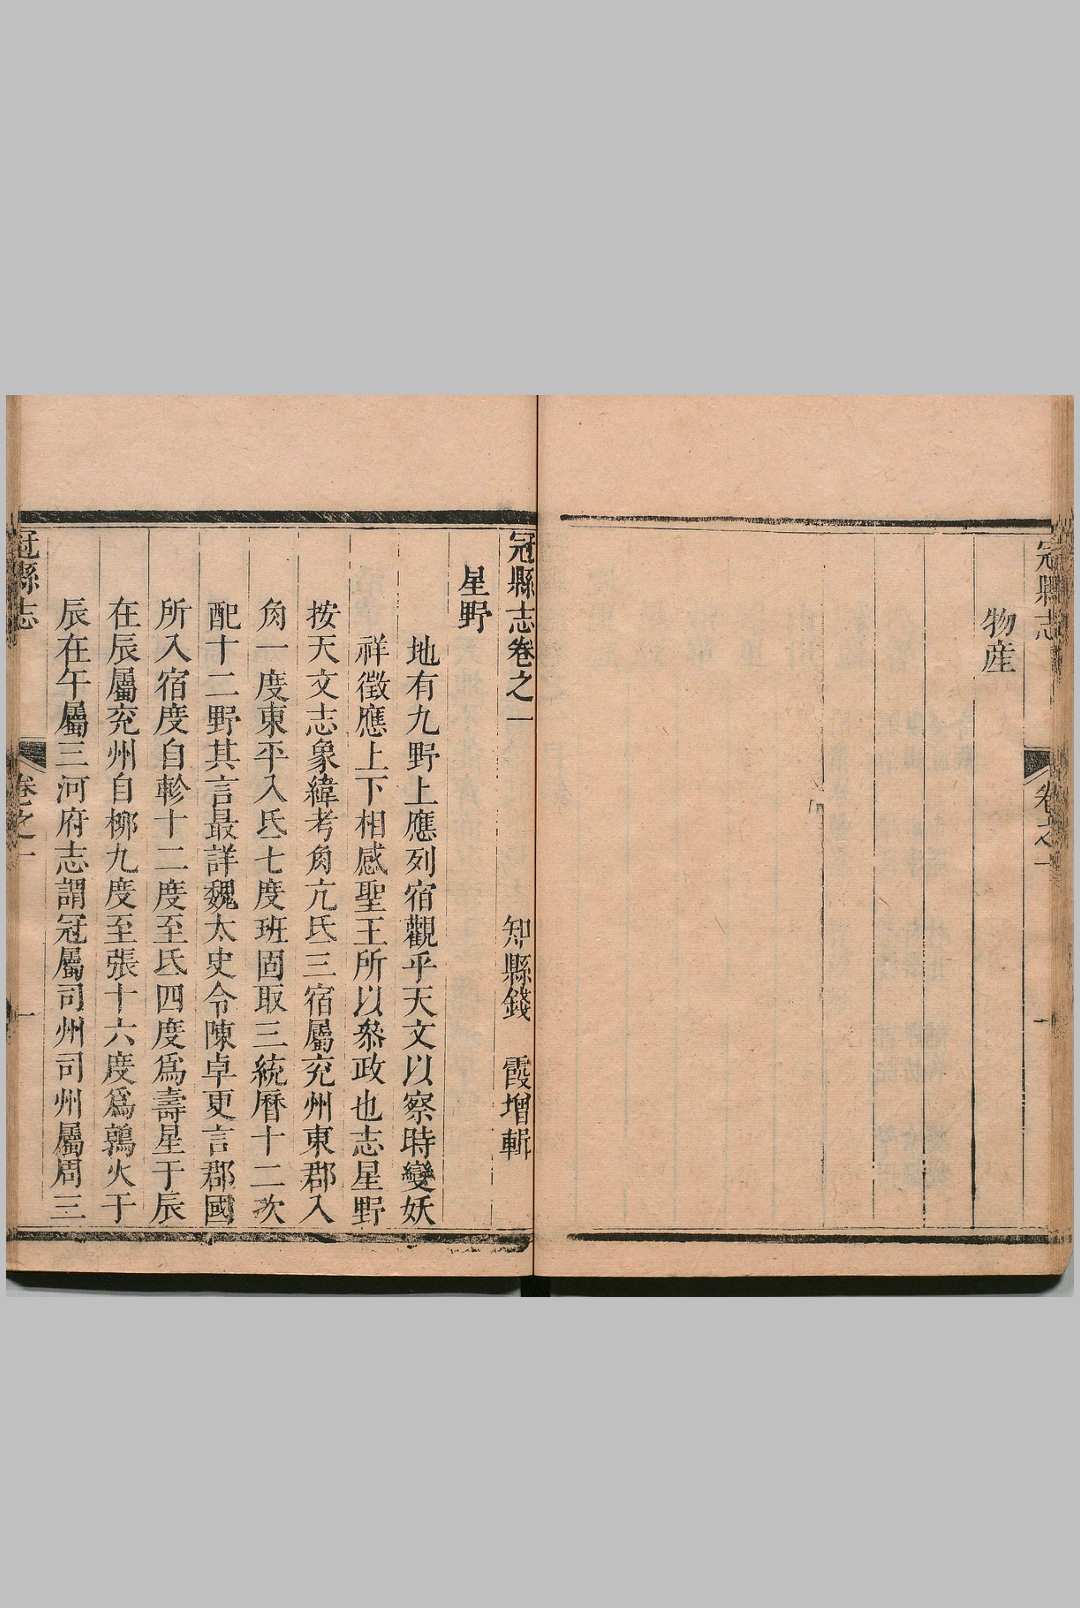 冠縣志
卷之一
一
物産
冠縣志卷之一
知縣錢　霞增輯
星野
地有九野上應列宿觀乎天文以察時變妖
祥徵應上下相感聖王所以叅政也志星野
按天文志象緯考角亢氐三宿屬兖州東郡入
角一度東平入氐七度班固取三統曆十二次
配十二野其言最詳魏太史令陳卓更言郡國
所入宿度自軫十二度至氐四度爲壽星于辰
在辰屬兖州自柳九度至張十六度爲鶉火于
辰在午屬三河府志謂冠屬司州司州屬周三
冠縣志
卷之一
一